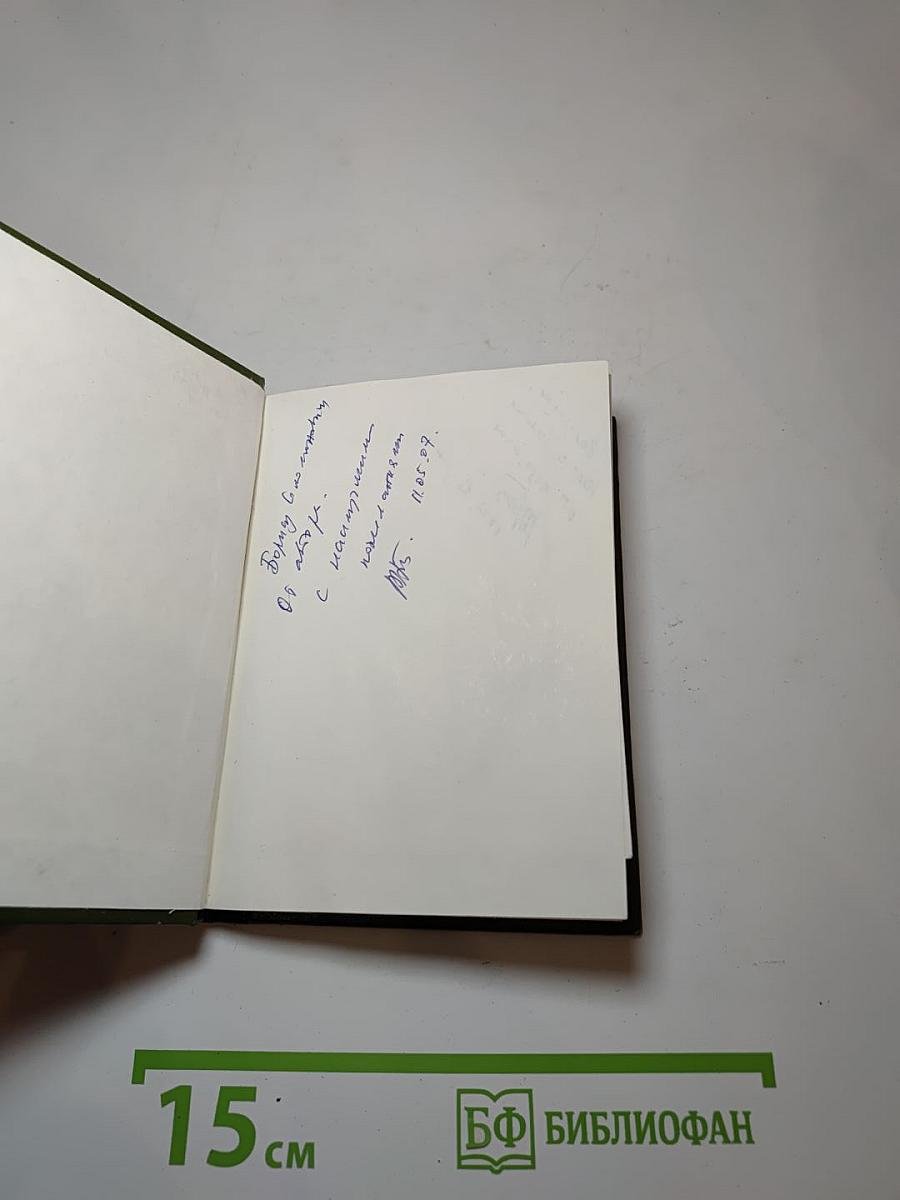 Борису Соломоновичу
От автора.
С наилучшими
пожеланиями
11.05.07.
15 см
БФ БИБЛИОФАН